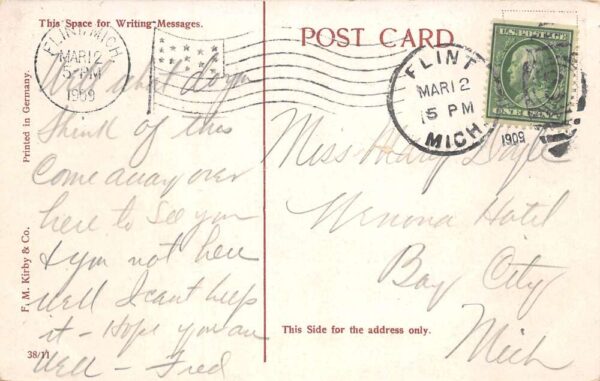 This Space for Writing Messages.
POST CARD
FLINT, MICH.
MAR 12
5 PM
1909
FLINT
MAR 12
5 PM
MICH.
1909
U.S. POSTAGE
ONE CENT
Well what do you
think of this
Come away over
here to see you
& you not here
well I cant help
it - Hope you are
well - Fred
Miss Mary
Wenona Hotel
Bay City
Mich
This Side for the address only.
Printed in Germany.
F. M. Kirby & Co.
38/11